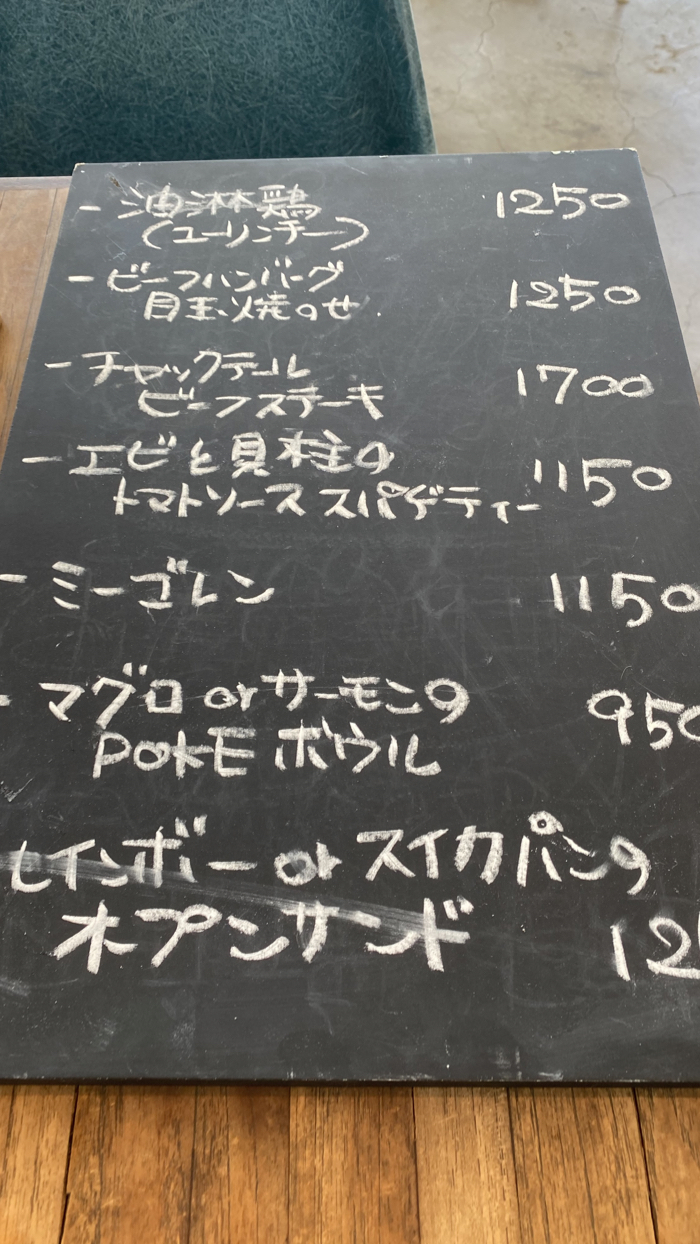 - 油淋鶏 1250
(ユーリンチー)
- ビーフハンバーグ 1250
目玉焼のせ
- チャックテール 1700
ビーフステーキ
- エビと貝柱の 1150
トマトソース スパゲティー
- ミーゴレン 1150
- マグロ or サーモンの 950
POKE ボウル
レインボー or スイカパンの
オープンサンド 12